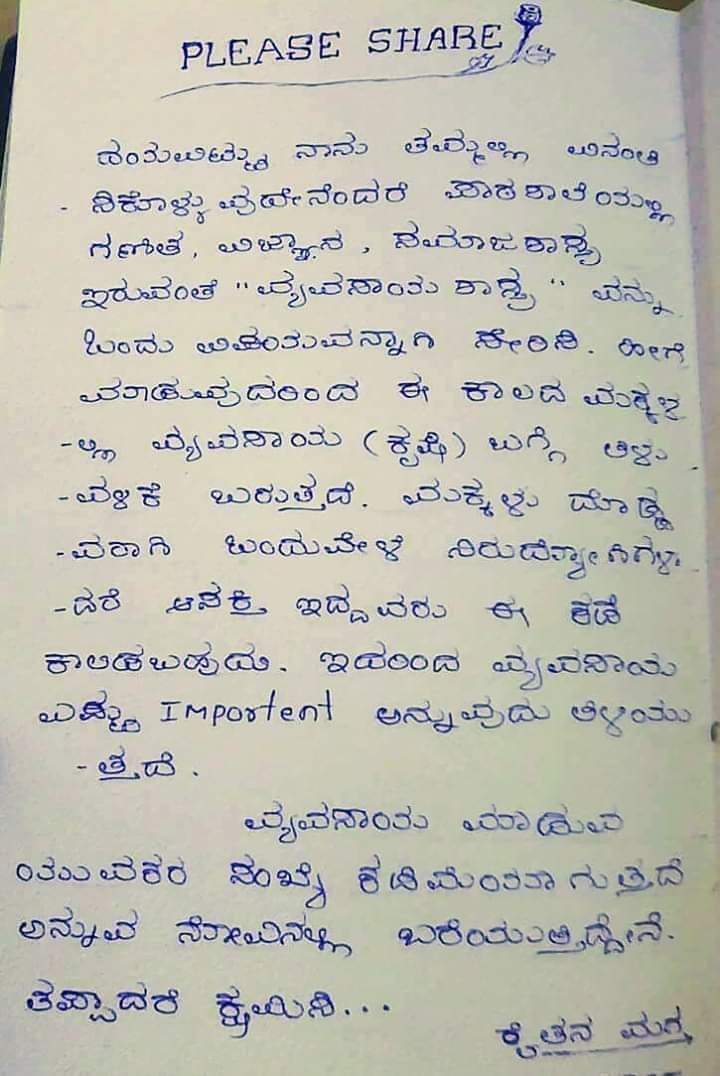 PLEASE SHARE
ದಯವಿಟ್ಟು ನಾನು ತಮ್ಮಲ್ಲಿ ವಿನಂತಿ
- ಸಿಕೊಳ್ಳುವುದೇನೆಂದರೆ ಪಾಠಶಾಲೆಯಲ್ಲಿ
ಗಣಿತ, ವಿಜ್ಞಾನ, ಸಮಾಜಶಾಸ್ತ್ರ
ಇರುವಂತೆ "ವ್ಯವಸಾಯ ಶಾಸ್ತ್ರ" ವನ್ನು
ಒಂದು ವಿಷಯವನ್ನಾಗಿ ಸೇರಿಸಿ. ಹೀಗೆ
ಮಾಡುವುದರಿಂದ ಈ ಕಾಲದ ಮಕ್ಕಳ
-ಲ್ಲಿ ವ್ಯವಸಾಯ (ಕೃಷಿ) ಬಗ್ಗೆ ತಿಳು
-ವಳಿಕೆ ಬರುತ್ತದೆ. ಮಕ್ಕಳು ದೊಡ್ಡ
-ವರಾಗಿ ಒಂದುವೇಳೆ ನಿರುದ್ಯೋಗಿಗಳಾ
-ದರೆ ಆಸಕ್ತಿ ಇದ್ದವರು ಈ ಕಡೆ
ಕಾಲಿಡಬಹುದು. ಇದರಿಂದ ವ್ಯವಸಾಯ
ಎಷ್ಟು Importent ಅನ್ನುವುದು ತಿಳಿಯು
-ತ್ತದೆ.
ವ್ಯವಸಾಯ ಮಾಡುವ
ಯುವಕರ ಸಂಖ್ಯೆ ಕಡಿಮೆಯಾಗುತ್ತಿದೆ
ಅನ್ನುವ ನೋವಿನಲ್ಲಿ ಬರೆಯುತ್ತಿದ್ದೇನೆ.
ತಪ್ಪಾದರೆ ಕ್ಷಮಿಸಿ...
ರೈತನ ಮಗ